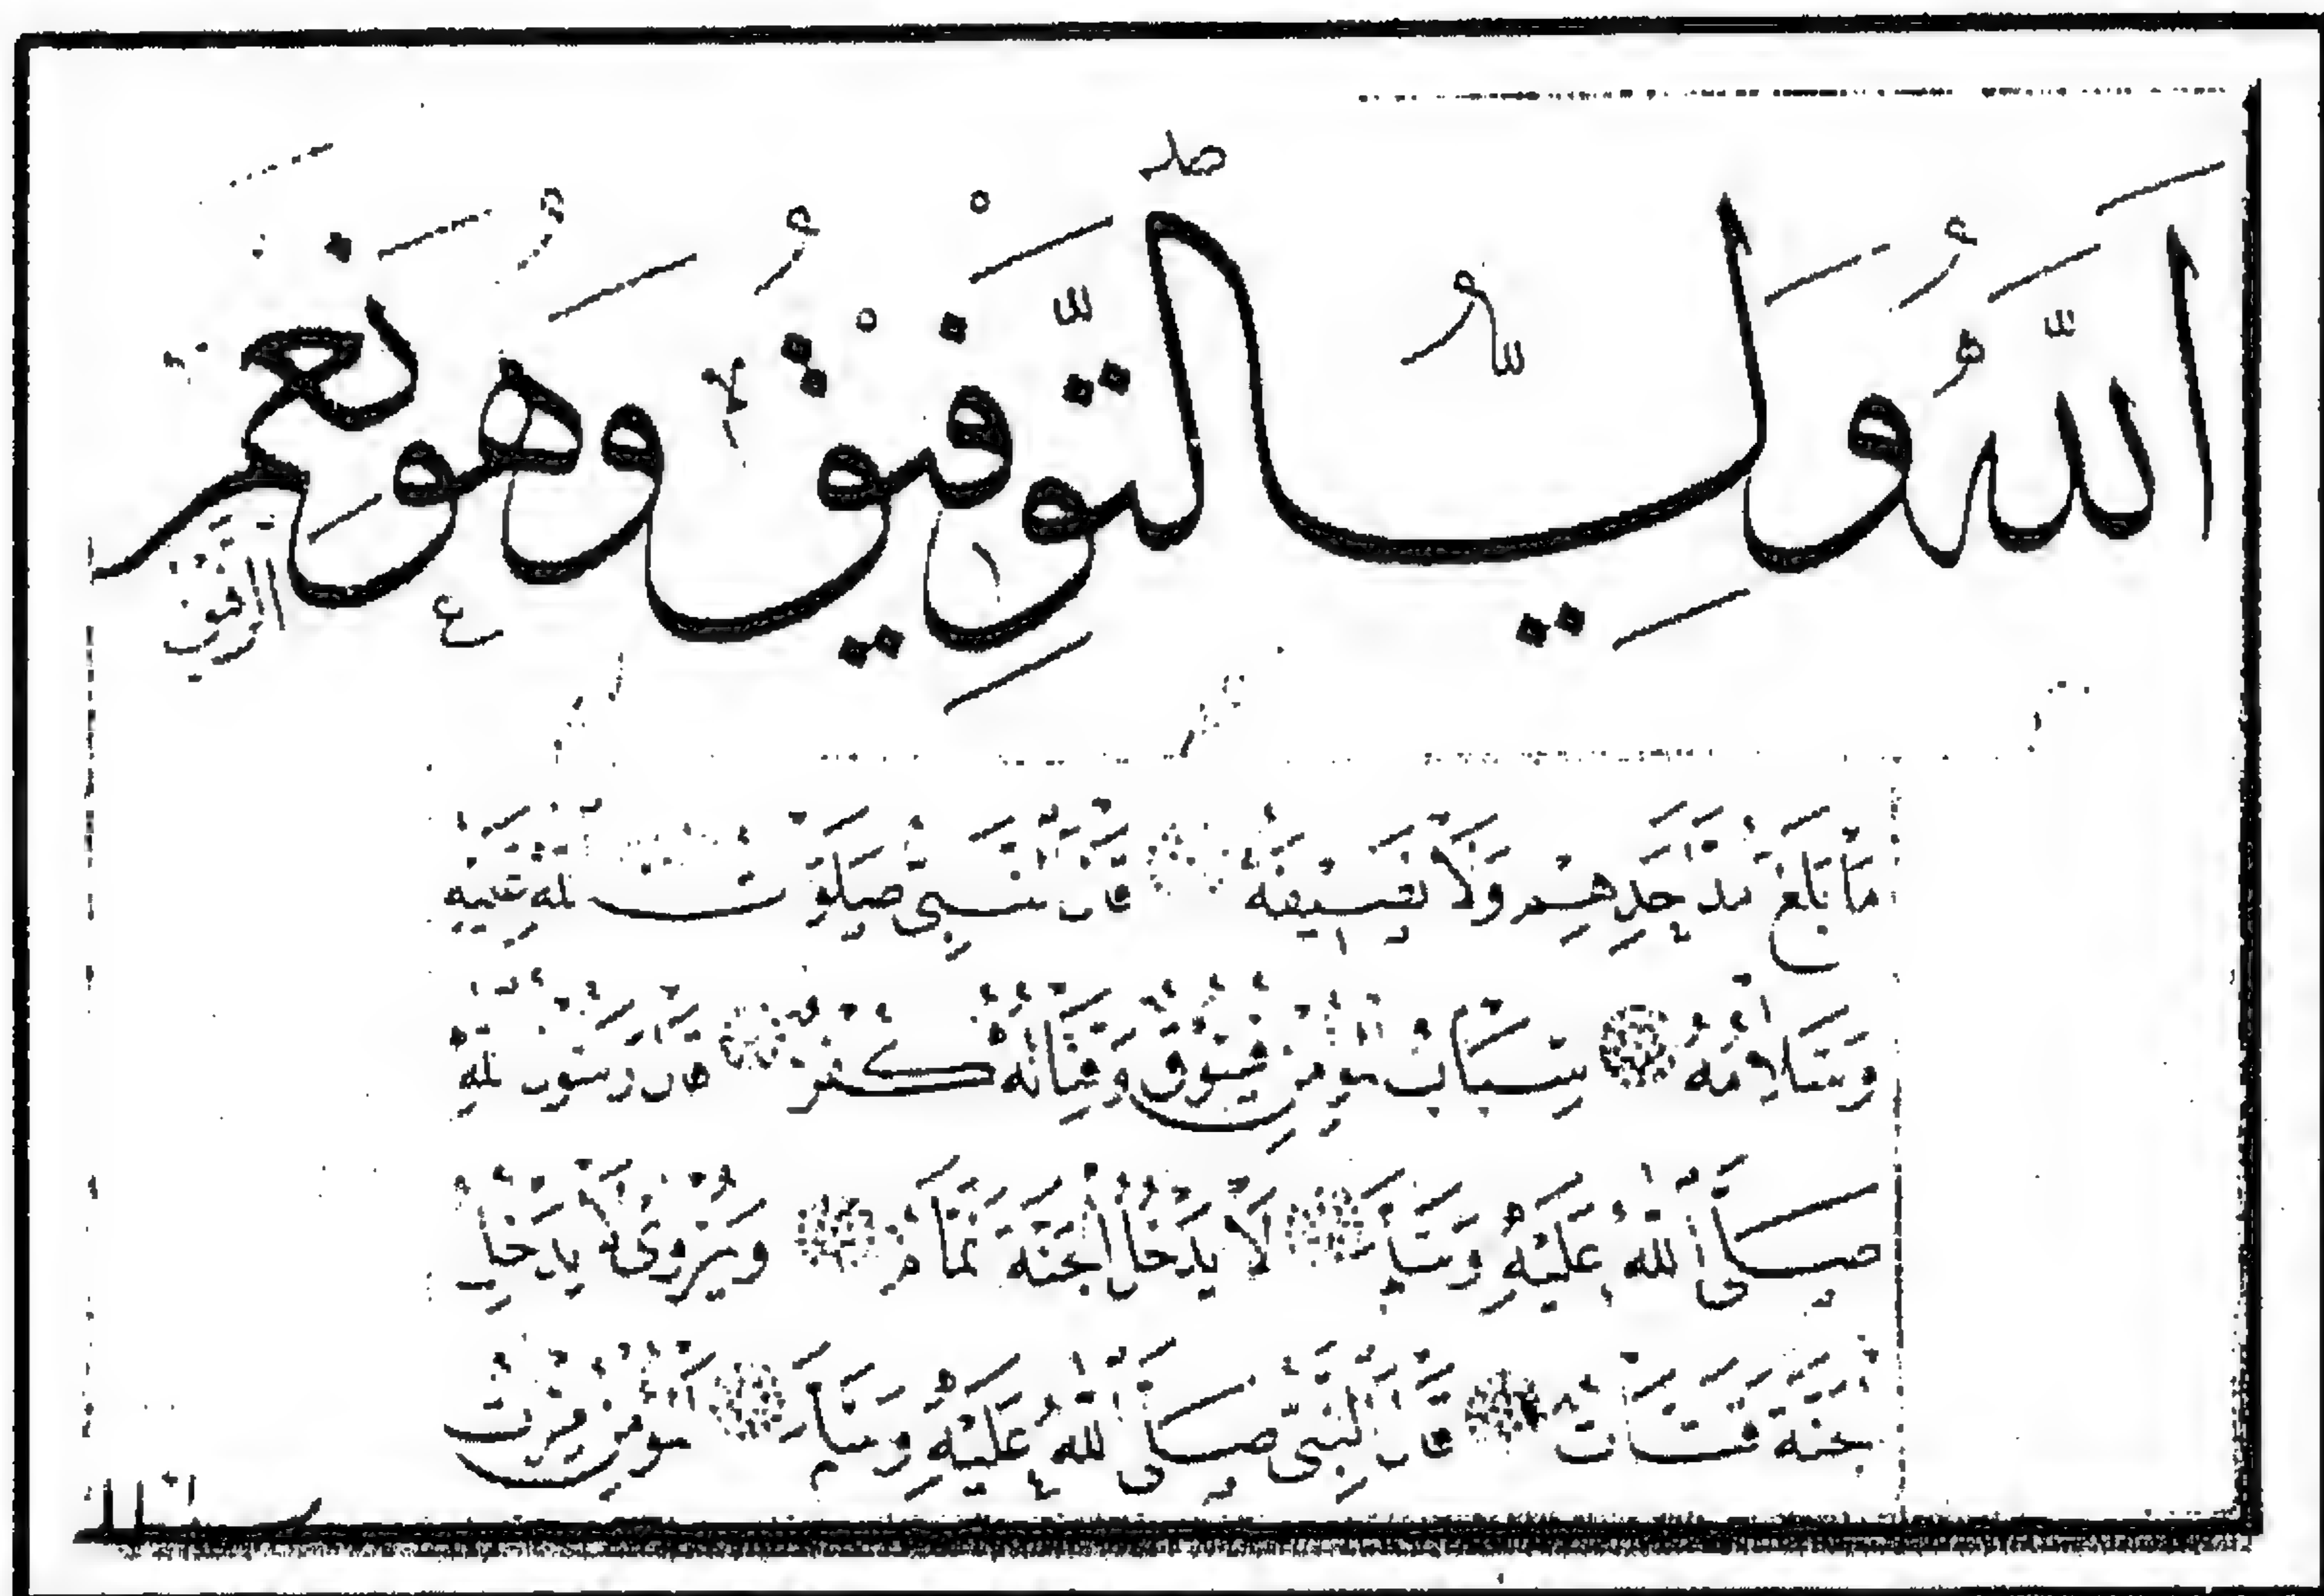 اللَّهُ وَلِيُّ التَّوْفِيقُ وَهُوَ نِعْمَ الرفيق
مَا بَلَغَ مُدَّ أَحَدِهِمْ وَلَا نَصِيفَهُ قَالَ النَّبِيُّ صَلَوَاتُ اللهِ عَلَيْهِ
وَسَلَامُهُ سِبَابُ الْمُؤْمِنِ فُسُوقٌ وَقِتَالُهُ كُفْرٌ قَالَ رَسُولُ اللهِ
صَلَّى اللهُ عَلَيْهِ وَسَلَّمَ لَا يَدْخُلُ الْجَنَّةَ نَمَّامٌ وَيُرْوَى لَا يَدْخُلُ
الْجَنَّةَ قَتَّاتٌ قَالَ النَّبِيُّ صَلَّى اللهُ عَلَيْهِ وَسَلَّمَ الْمُؤْمِنُ مِرْآتُ